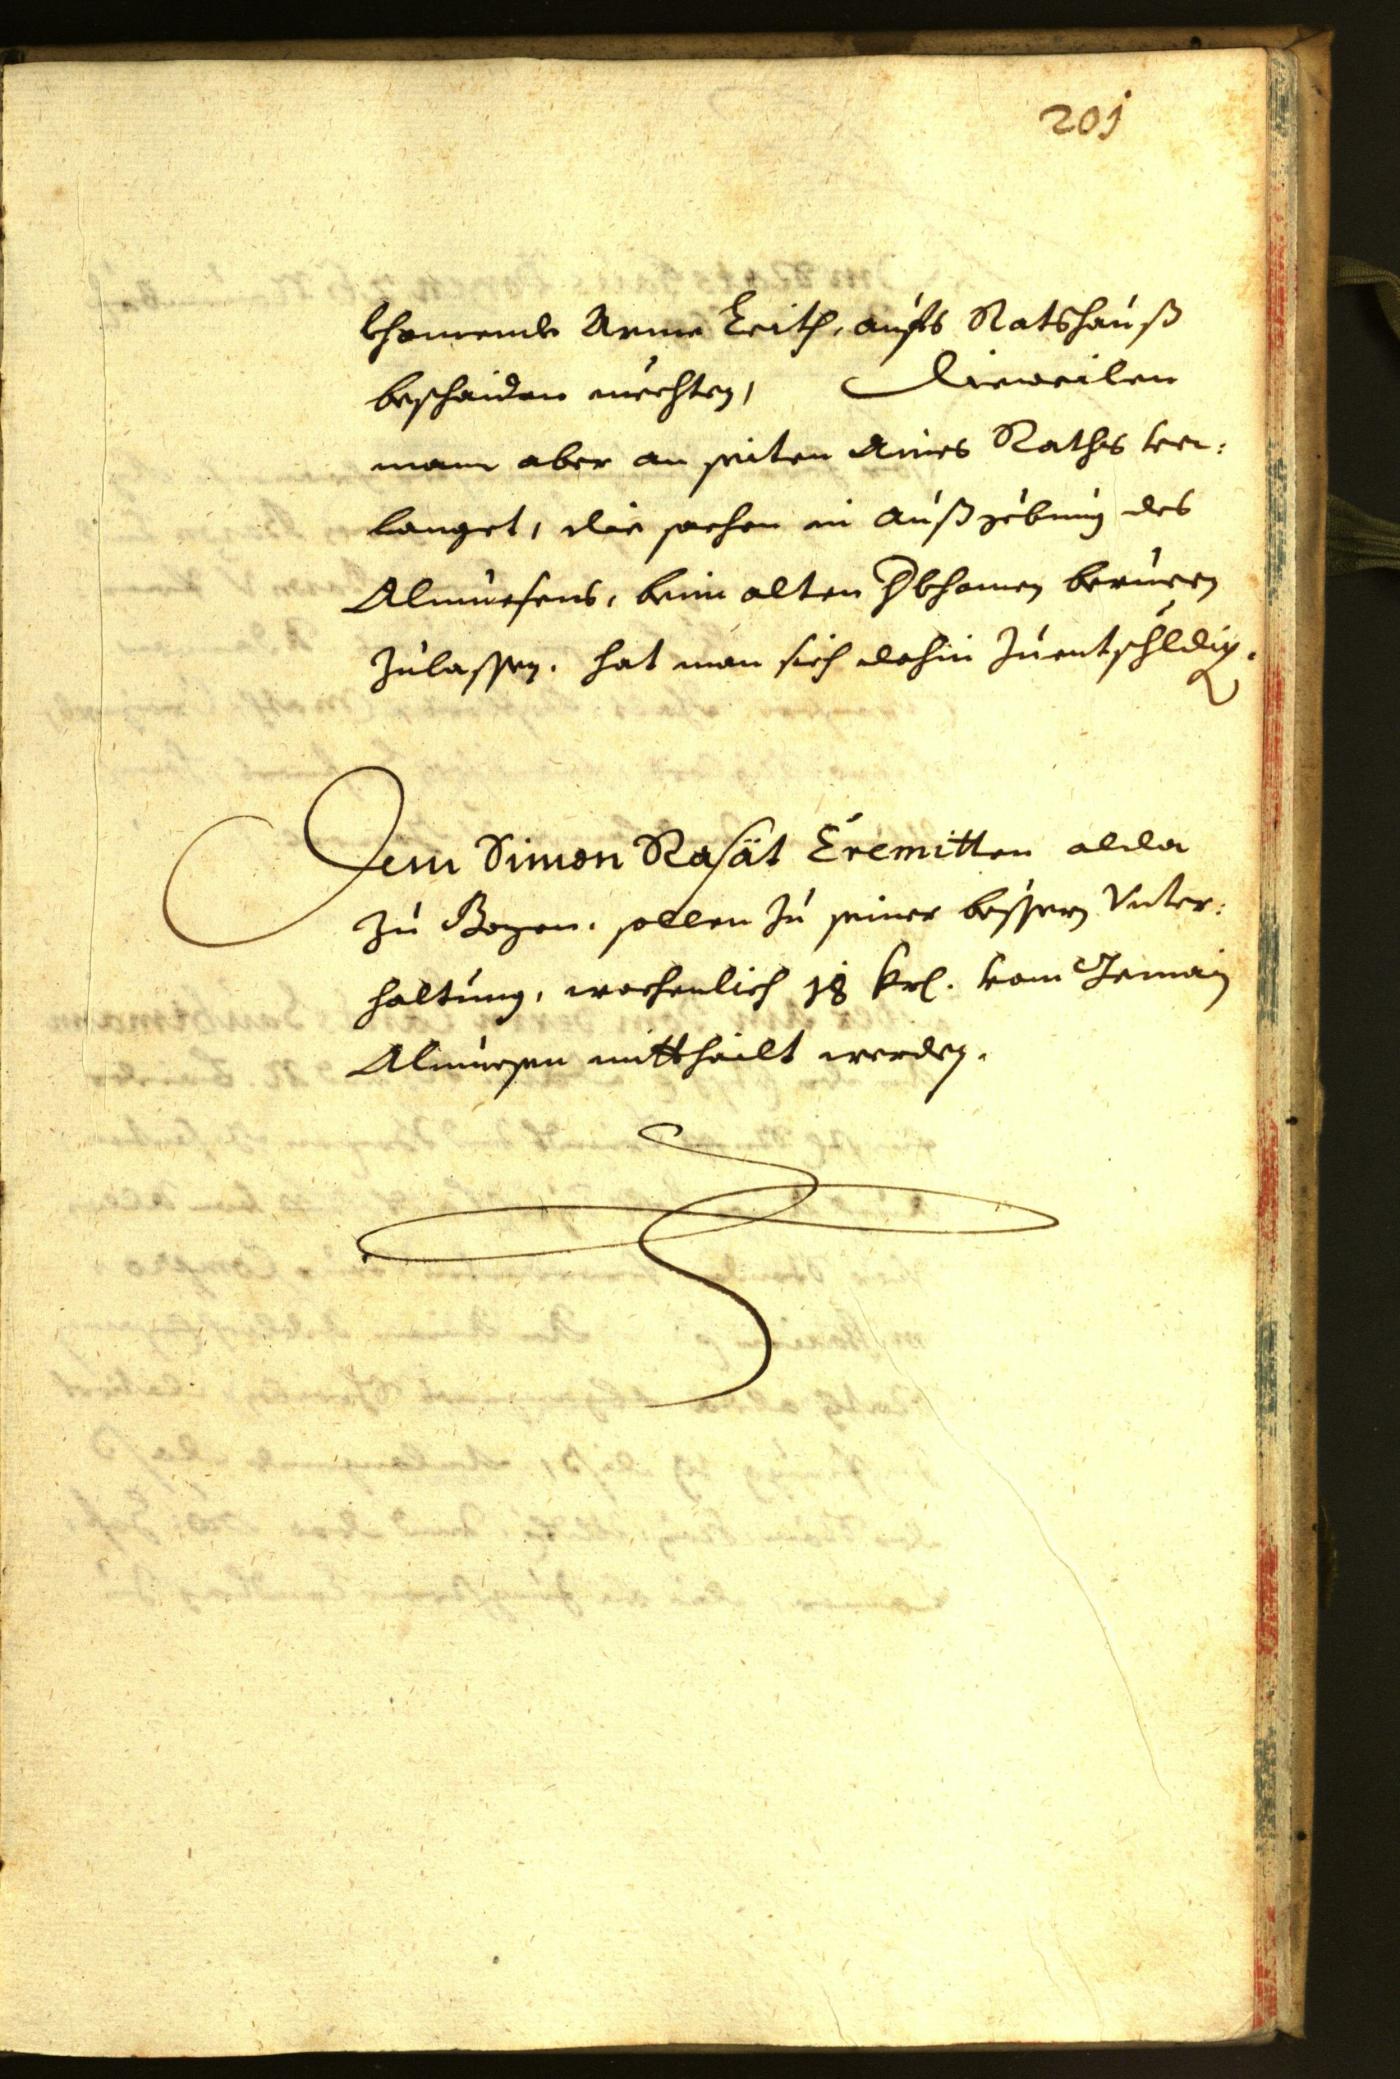 201
khomende Arme Leith, aufs Ratshauß
beschaiden mechten, Dieweilen
mann aber an seiten Aines Rathes ver:
langet, die sachen in Außgebung des
Almuesens, beim alten Herkhomen beruen
zulassen. hat man sich dahin zuentschuldig.
Dem Simon Rasät Eremitten alda
zu Bozen. sollen zu seiner bessern Unter:
haltung, wochenlich 18 kr. vom Gemain
Almuesen mitthailt werden.